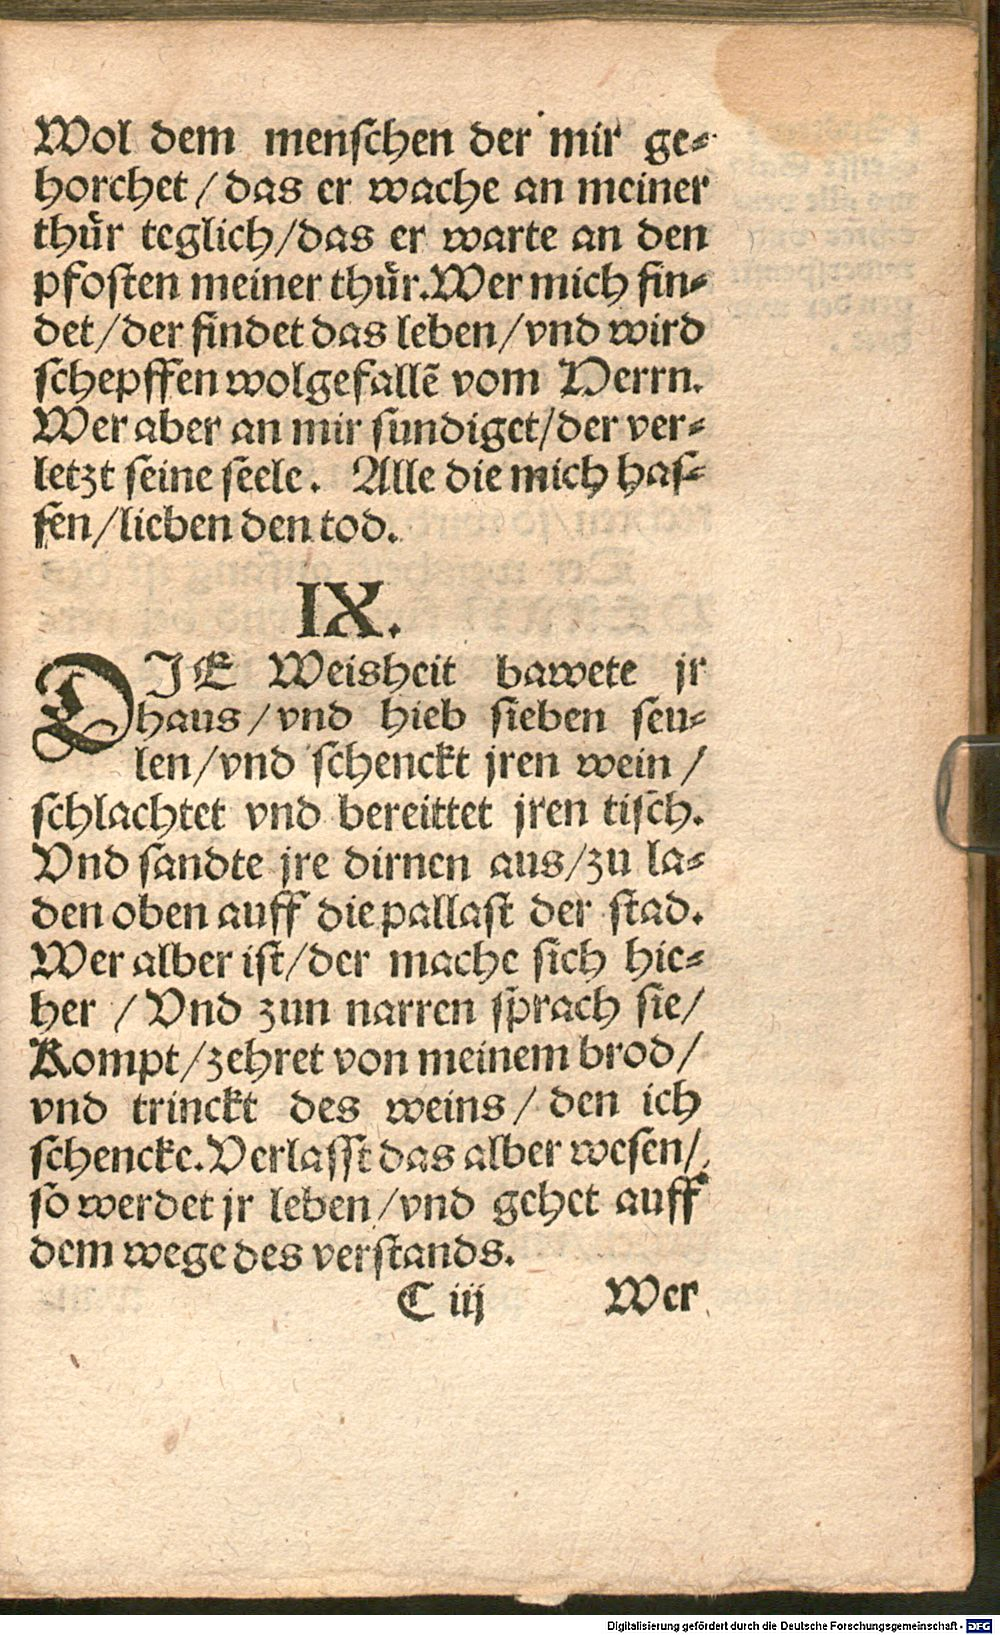 Wol dem menſchen der mir ge⸗
horchet / das er wache an meiner
thuͤr teglich/das er warte an den
pfoſten meiner thuͤr.Wer mich fin⸗
det/der findet das leben/vnd wird
ſchepffen wolgefallē vom Herrn.
Wer aber an mir ſundiget/der ver⸗
letzt ſeine ſeele. Alle die mich haſ⸗
ſen/lieben den tod.
IX.
DIE Weisheit bawete jr
haus/vnd hieb ſieben ſeu⸗
len/vnd ſchenckt jren wein/
ſchlachtet vnd bereittet jren tiſch.
Vnd ſandte jre dirnen aus/zu la⸗
den oben auff die pallaſt der ſtad.
Wer alber iſt/der mache ſich hie⸗
her /Vnd zun narren ſprach ſie/
Kompt/zehret von meinem brod/
vnd trinckt des weins/ den ich
ſchencke.Verlaſſt das alber weſen/
ſo werdet jr leben/vnd gehet auff
dem wege des verſtands.
C iij Wer
Digitalisierung gefördert durch die Deutsche Forschungsgemeinschaft - DFG